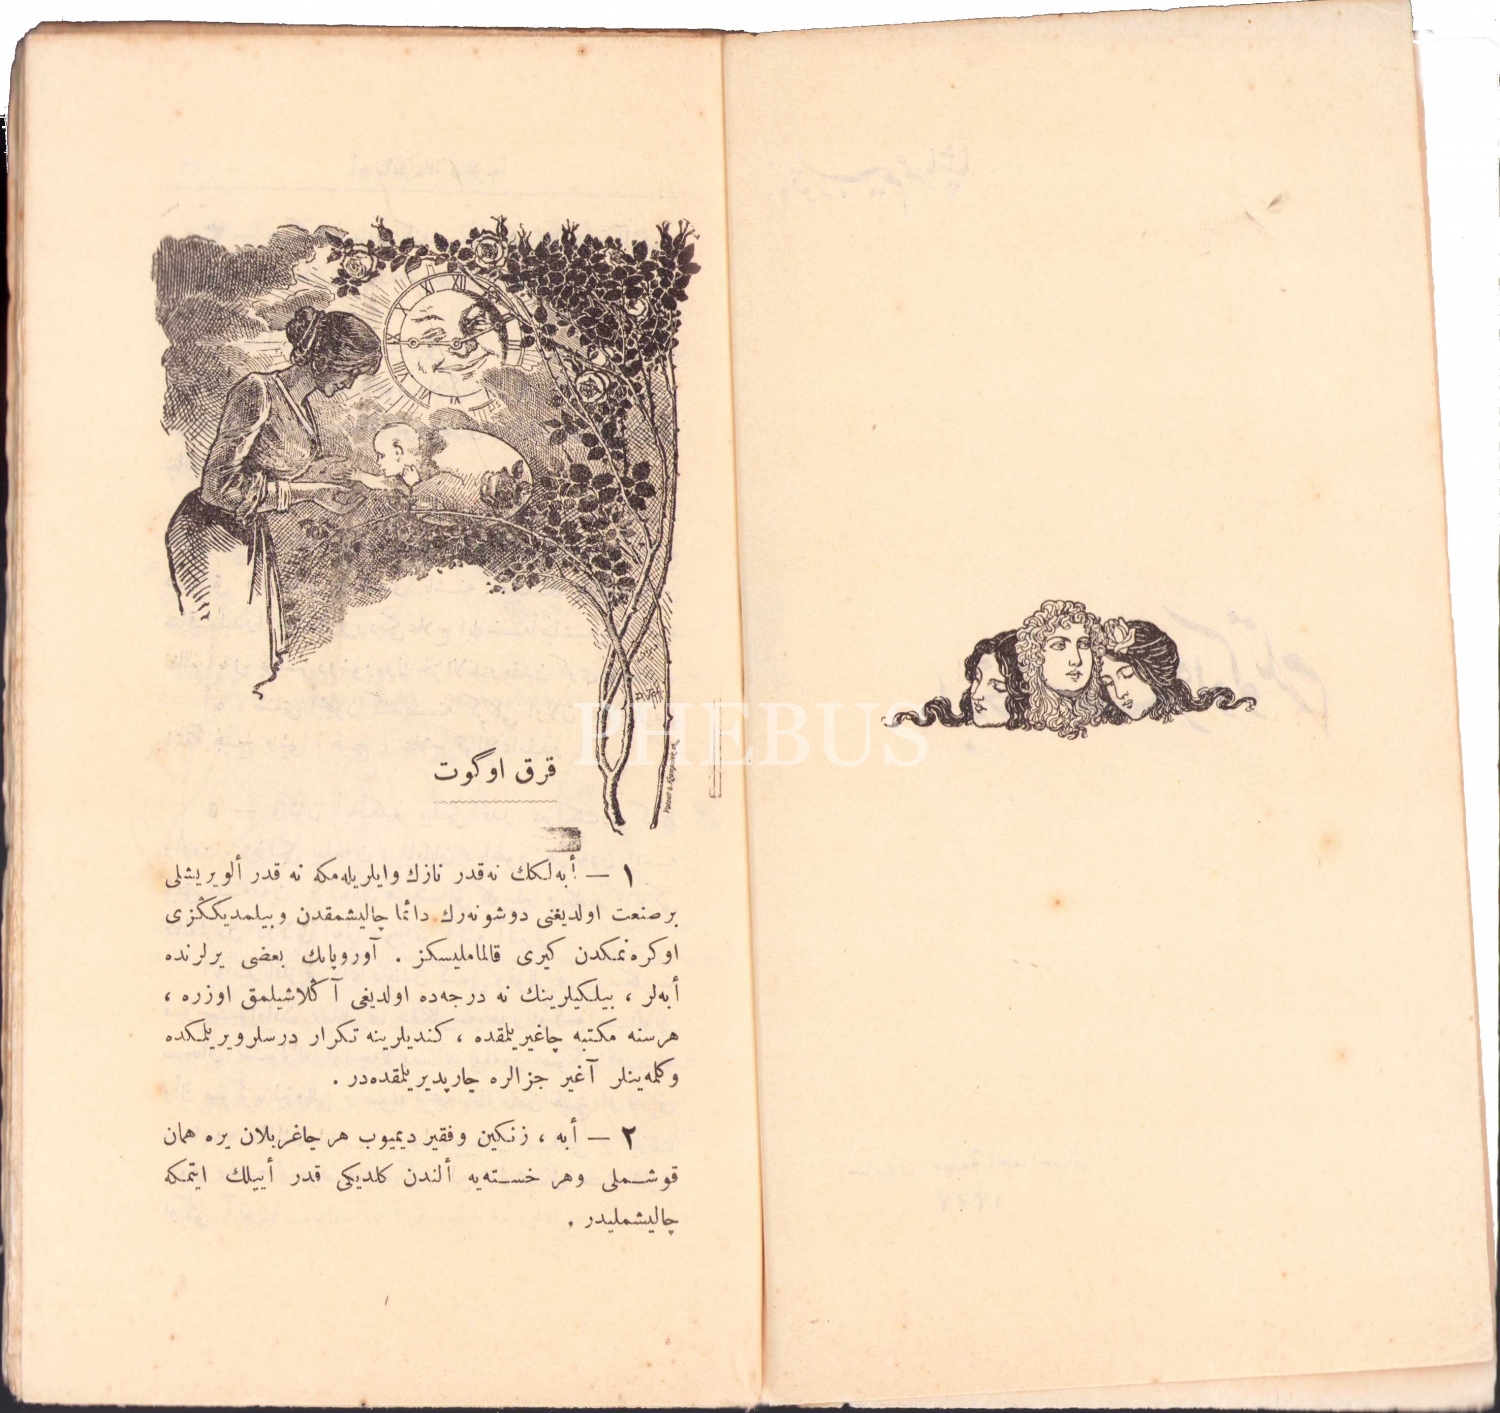 قرق اوگوت
١ — أبه‌لكك نه‌قدر نازك وايلريله‌مكه نه قدر ألويريشلى
برصنعت اولديغنى دوشونه‌رك دائما چاليشمقدن وبيلمديككزى
اوكره‌نمكدن كيرى قالمامليسكز . آوروپانك بعضى يرلرنده
أبه‌لر ، بيلكيلرينك نه درجه‌ده اولديغى آڭلاشيلمق اوزره ،
هرسنه مكتبه چاغيريلمقده ، كنديلرينه تكرار درسلرويريلمكده
وكلمه‌ينلر آغير جزالره چارپديريلمقده‌در .
٢ — أبه ، زنكين وفقير ديميوب هر چاغريلان يره همان
قوشــملى وهر خســته‌يه ألندن كلديكى قدر أييلك ايتمكه
چاليشمليدر .
PHEBUS